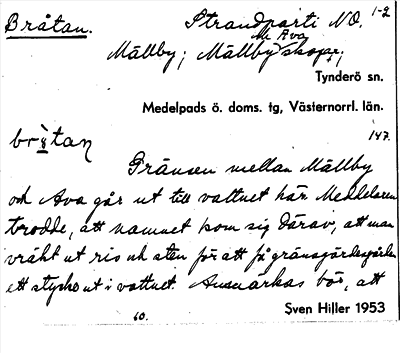 Bråtan. Strandparti NO. 1-2
Mällby; Mällby o. Ava skogar;
Tynderö sn.
Medelpads ö. doms. tg, Västernorrl. län.
147.
Gränsen mellan Mällby
och Ava går ut till vattnet här. Meddelaren
trodde, att namnet kom sig därav, att man
vräkt ut ris och sten för att få gränsgärdesgården
ett stycke ut i vattnet. Anmärkas bör, att
60. Sven Hiller 1953